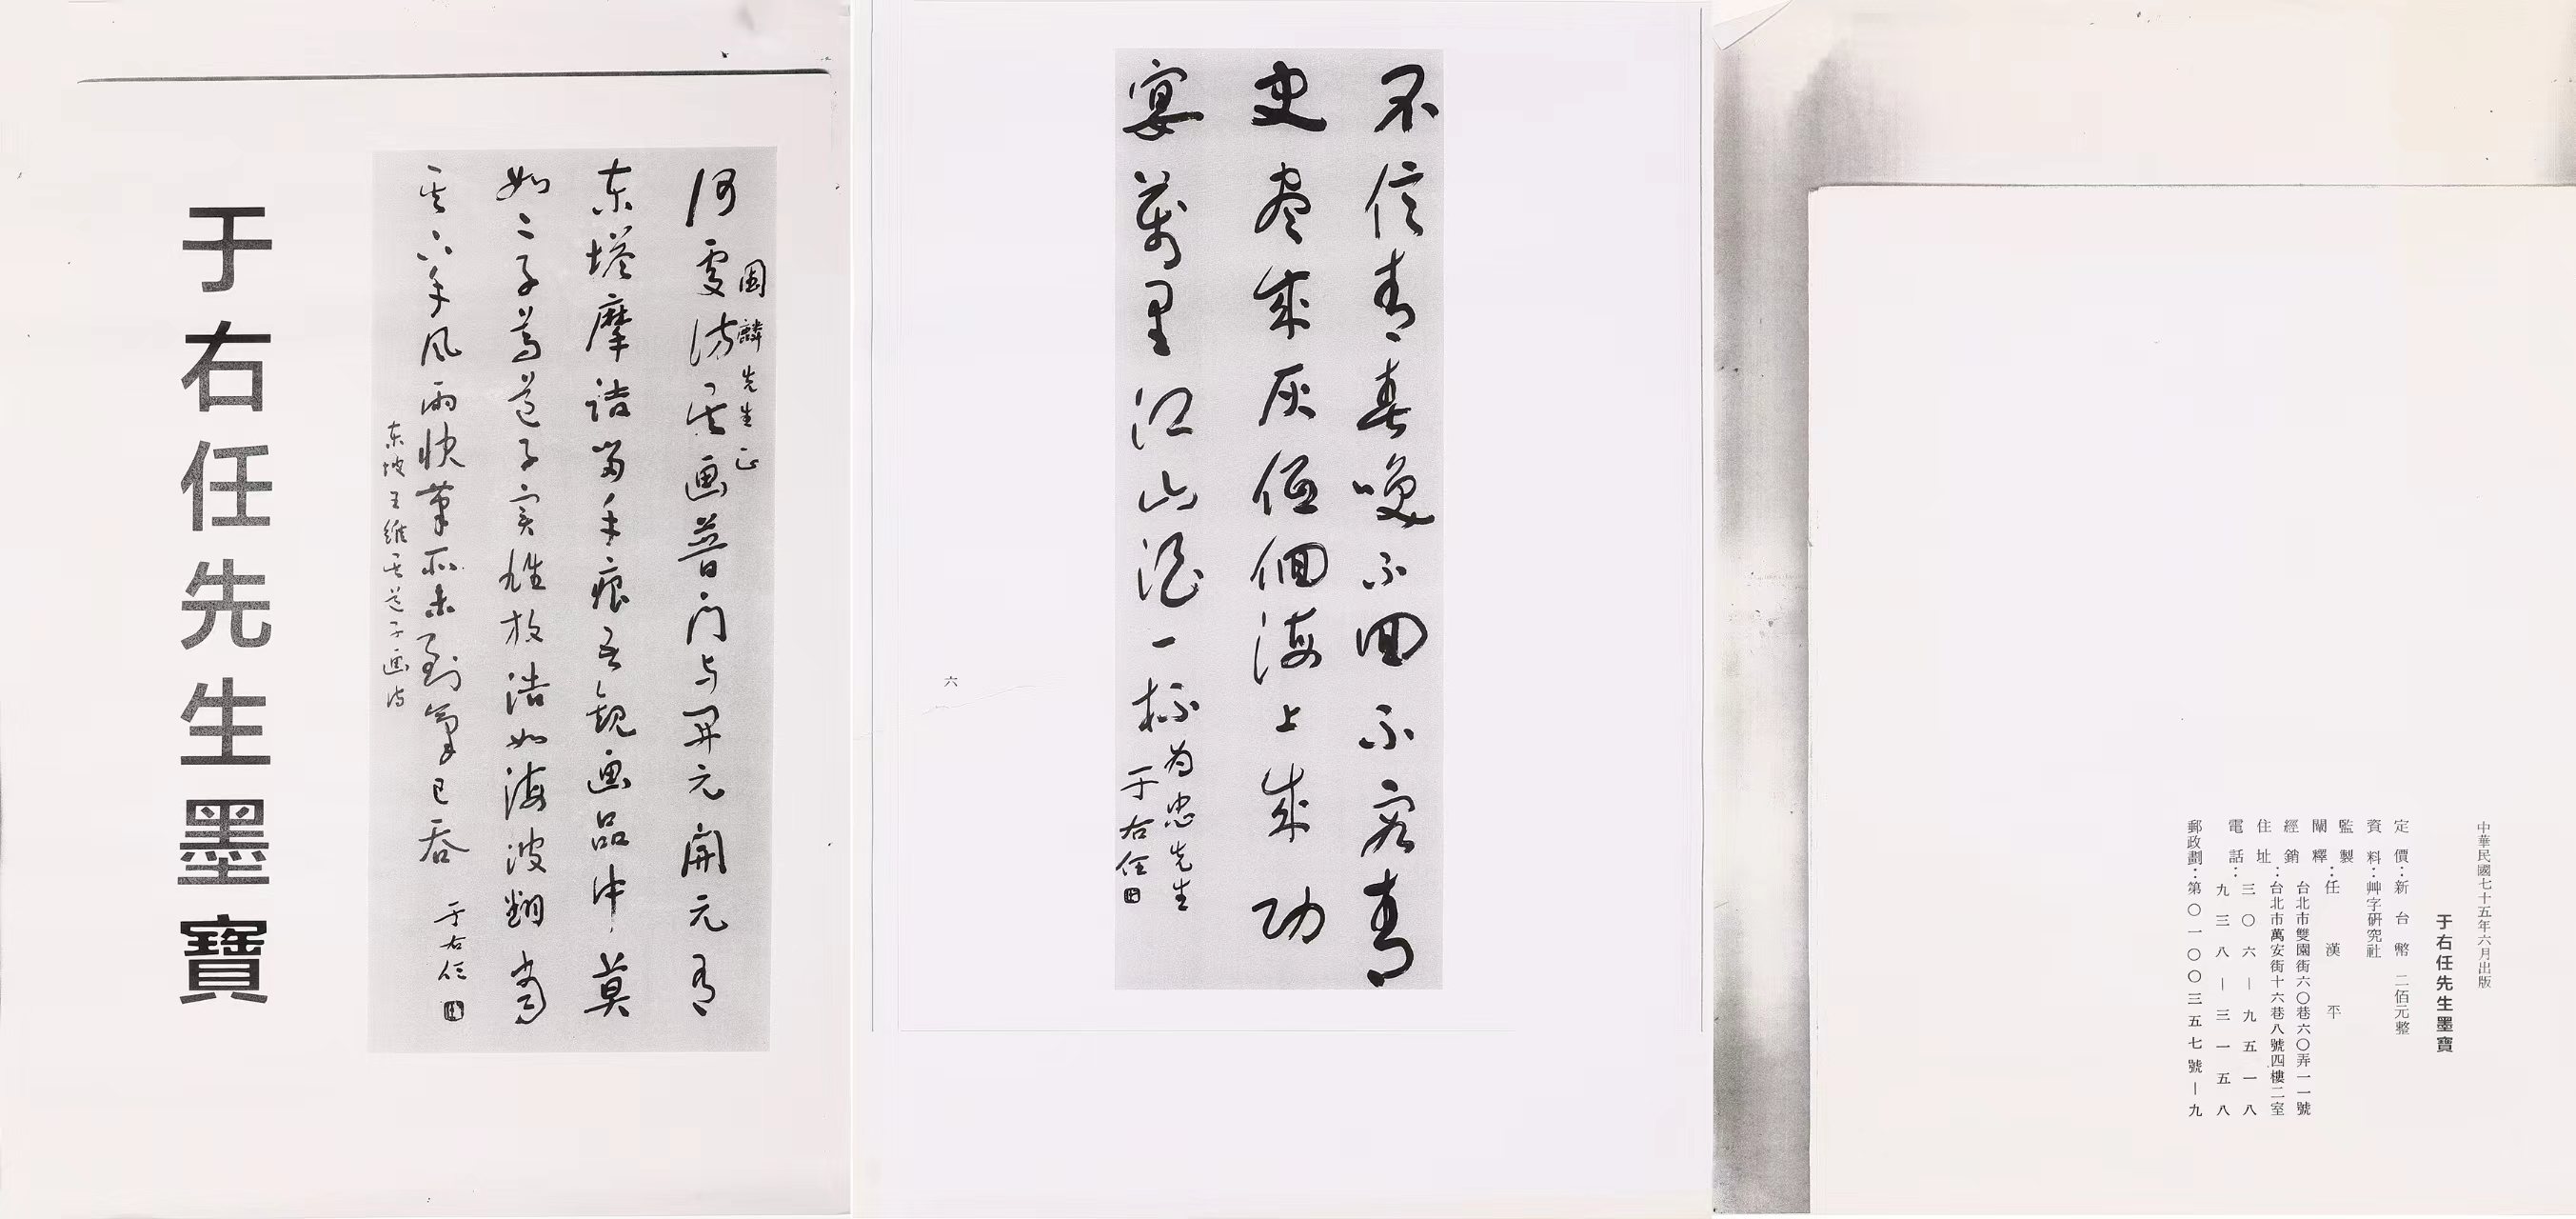 于右任先生墨寶
國麟先生正
何處訪吳画普门与开元開元有
东塔摩詰留手痕吾觀画品中莫
如二子尊道子實雄放浩如海波翻當
其下手風雨快筆所未到氣已吞
于右任
东坡王維吳道子画诗
不信青春喚不回不容青
史盡成灰低佪海上成功
宴萬里江山酒一杯
为忠先生
于右任
六
中華民國七十五年六月出版
于右任先生墨寶
定價：新台幣 二佰元整
資料：艸字研究社
監製
闡釋：任漢平
經銷：台北市雙園街六〇巷六〇弄一一號
住址：台北市萬安街十六巷八號四樓二室
電話：三〇六—九五一八
九三八—三一五八
郵政劃：第〇一〇〇三五七號—九